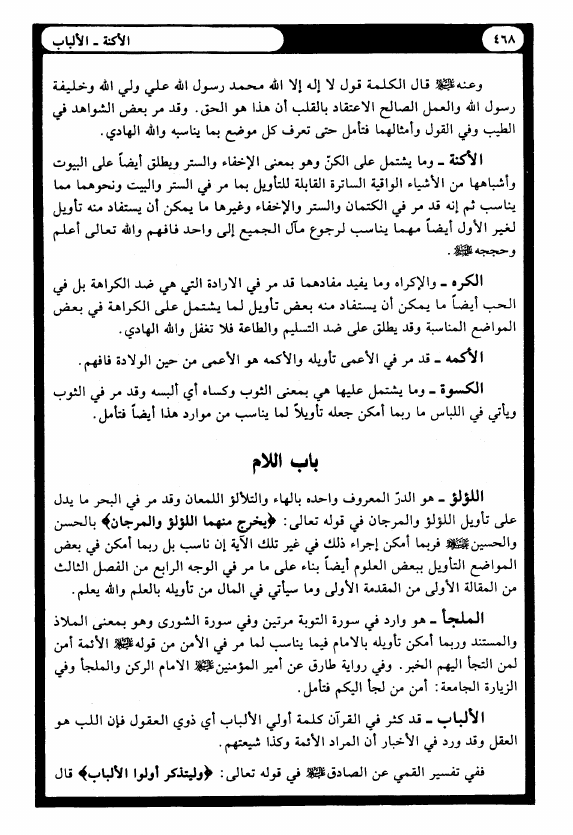 ٤٦٨
الأكنة ـ الألباب
وعنه ﷺ قال الكلمة قول لا إله إلا الله محمد رسول الله علي ولي الله وخليفة
رسول الله والعمل الصالح الاعتقاد بالقلب أن هذا هو الحق. وقد مر بعض الشواهد في
الطيب وفي القول وأمثالهما فتأمل حتى تعرف كل موضع بما يناسبه والله الهادي.
الأكنة ـ وما يشتمل على الكنّ وهو بمعنى الإخفاء والستر ويطلق أيضاً على البيوت
وأشباهها من الأشياء الواقية الساترة القابلة للتأويل بما مر في الستر والبيت ونحوهما مما
يناسب ثم إنه قد مر في الكتمان والستر والإخفاء وغيرها ما يمكن أن يستفاد منه تأويل
لغير الأول أيضاً مهما يناسب لرجوع مآل الجميع إلى واحد فافهم والله تعالى أعلم
وحججه .
الكره ـ والإكراه وما يفيد مفادهما قد مر في الارادة التي هي ضد الكراهة بل في
الحب أيضاً ما يمكن أن يستفاد منه بعض تأويل لما يشتمل على الكراهة في بعض
المواضع المناسبة وقد يطلق على ضد التسليم والطاعة فلا تغفل والله الهادي.
الأكمه ـ قد مر في الأعمى تأويله والأكمه هو الأعمى من حين الولادة فافهم.
الكسوة ـ وما يشتمل عليها هي بمعنى الثوب وكساه أي ألبسه وقد مر في الثوب
ويأتي في اللباس ما ربما أمكن جعله تأويلاً لما يناسب من موارد هذا أيضاً فتأمل.
باب اللام
اللؤلؤ ـ هو الدرّ المعروف واحده بالهاء والتلألؤ اللمعان وقد مر في البحر ما يدل
على تأويل اللؤلؤ والمرجان في قوله تعالى: ﴿يخرج منهما اللؤلؤ والمرجان﴾ بالحسن
والحسين فربما أمكن إجراء ذلك في غير تلك الآية إن ناسب بل ربما أمكن في بعض
المواضع التأويل ببعض العلوم أيضاً بناء على ما مر في الوجه الرابع من الفصل الثالث
من المقالة الأولى من المقدمة الأولى وما سيأتي في المال من تأويله بالعلم والله يعلم.
الملجأ ـ هو وارد في سورة التوبة مرتين وفي سورة الشورى وهو بمعنى الملاذ
والمستند وربما أمكن تأويله بالامام فيما يناسب لما مر في الأمن من قوله الأئمة أمن
لمن التجأ اليهم الخبر. وفي رواية طارق عن أمير المؤمنين الامام الركن والملجأ وفي
الزيارة الجامعة: أمن من لجأ اليكم فتأمل.
الألباب ـ قد كثر في القرآن كلمة أولي الألباب أي ذوي العقول فإن اللب هو
العقل وقد ورد في الأخبار أن المراد الأئمة وكذا شيعتهم.
ففي تفسير القمي عن الصادق في قوله تعالى: ﴿وليتذكر أولوا الألباب﴾ قال